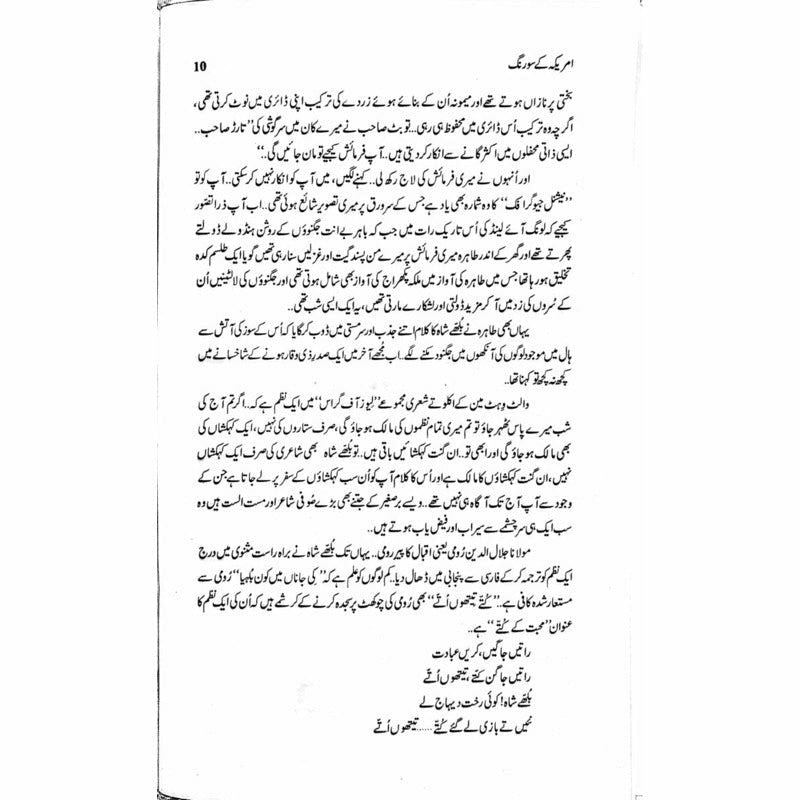 امریکہ کے سو رنگ
10
بختی پر نازاں ہوتے تھے اور میمونہ اُن کے بنائے ہوئے زردے کی ترکیب اپنی ڈائری میں نوٹ کرتی تھی،
اگرچہ وہ ترکیب اُس ڈائری میں محفوظ ہی رہی.. تو بٹ صاحب نے میرے کان میں سرگوشی کی ”تارڑ صاحب..
ایسی ذاتی محفلوں میں اکثر گانے سے انکار کر دیتی ہیں.. آپ فرمائش کیجیے تو مان جائیں گی..“
اور اُنہوں نے میری فرمائش کی لاج رکھ لی.. کہنے لگیں، میں آپ کو انکار نہیں کر سکتی.. آپ کو تو
”نیشنل جیوگرافک“ کا وہ شمارہ بھی یاد ہے جس کے سرورق پر میری تصویر شائع ہوئی تھی.. اب آپ ذرا تصور
کیجیے کہ لونگ آئے لینڈ کی اُس تاریک رات میں جب کہ باہر بے انت جگنوؤں کے روشن ہنڈولے ڈولتے
پھرتے تھے اور گھر کے اندر طاہرہ میری فرمائش پر میرے من پسند گیت اور غزلیں سنا رہی تھیں گویا ایک طلسم کدہ
تخلیق ہو رہا تھا جس میں طاہرہ کی آواز میں ملکہ پکھراج کی آواز بھی شامل ہوتی تھی اور جگنوؤں کی لالٹینیں اُن
کے سُروں کی زد میں آ کر مزید ڈولتی اور لشکارے مارتی تھیں، یہ ایک ایسی شب تھی..
یہاں بھی طاہرہ نے بُلھے شاہ کا کلام اتنے جذب اور سرمستی میں ڈوب کر گایا کہ اُس کے سوز کی آتش سے
ہال میں موجود لوگوں کی آنکھوں میں جگنو دمکنے لگے.. اب مُجھے آخر میں ایک صدرِ ذی وقار ہونے کے شاخسانے میں
کچھ نہ کچھ تو کہنا تھا..
والٹ وِہٹ مین کے اکلوتے شعری مجموعے ”لیوز آف گراس“ میں ایک نظم ہے کہ.. اگر تم آج کی
شب میرے پاس ٹھہر جاؤ تو تم میری تمام نظموں کی مالک ہو جاؤ گی، صرف ستاروں کی نہیں، ایک کہکشاں کی
بھی مالک ہو جاؤ گی اور ابھی تو.. ان گنت کہکشائیں باقی ہیں.. تو بُلھے شاہ بھی شاعری کی صرف ایک کہکشاں
نہیں، ان گنت کہکشاؤں کا مالک ہے اور اُس کا کلام آپ کو اُن سب کہکشاؤں کے سفر پر لے جاتا ہے جن کے
وجود سے آپ آج تک آگاہ ہی نہیں تھے.. ویسے برصغیر کے جتنے بھی بڑے صُوفی شاعر اور مست الست ہیں وہ
سب ایک ہی سرچشمے سے سیراب اور فیض یاب ہوتے ہیں..
مولانا جلال الدین رُومی یعنی اقبال کا پیر رومی.. یہاں تک بُلھے شاہ نے براہ راست مثنوی میں درج
ایک نظم کو ترجمہ کر کے فارسی سے پنجابی میں ڈھال دیا.. کم لوگوں کو علم ہے کہ ”کی جاناں میں کون بلھیا“ رُومی سے
مستعار شدہ کافی ہے.. ”کُتے تیتھوں اُتے“ بھی رُومی کی چوکھٹ پر سجدہ کرنے کے کرشمے ہیں کہ اُن کی ایک نظم کا
عنوان ”محبت کے کُتے“ ہے..
راتیں جاگیں، کریں عبادت
راتیں جاگن کتے، تیتھوں اُتے
بُلھے شاہ! کوئی رخت ویہاج لے
نئیں تے بازی لے گئے کُتے ...... تیتھوں اُتے